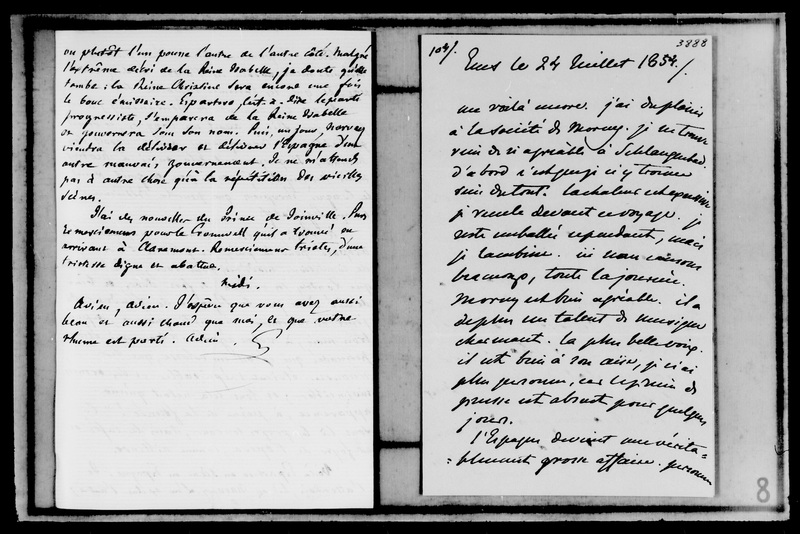 ou plutôt l'un pousse l'autre de l'autre côté. Malgré
l'extrême désir de la Reine Isabelle, je doute qu'elle
tombe : la Reine Christine sera encore une fois
le bouc émissaire. Espartero, c'est-à-dire le parti
progressiste, s'emparera de la Reine Isabelle
et gouvernera sous son nom. Puis, un jour, Narvaez
viendra la délivrer et délivrer l'Espagne d'un
autre mauvais gouvernement. Je ne m'attends
pas à autre chose qu'à la répétition des vieilles
scènes.
J'ai des nouvelles du Prince de Joinville. Puis
remerciemens pour le Cromwell qu'il a trouvé en
arrivant à Claremont. Remerciemens tristes, d'une
tristesse digne et abattue.
Midi.
Adieu, adieu. J'espère que vous avez aussi
beau et aussi chaud que moi, et que votre
rhume est parti. Adieu. G
104/. 3888
Ems le 24 Juillet 1854./
me voilà encore. j'ai du plaisir
à la société de Morny. je ne trouve
rien de si agréable à Schlangenbad.
d'abord
rien du tout. la chaleur est
je recule devant ce voyage. je
reste emballée cependant, mais
je lambine. ici nous causons
beaucoup, toute la journée.
Morny est bien agréable. il a
de plus un talent de musique
charmant. la plus belle voix.
il est bien à son aise, je n'ai
plus personne, car le prince de
prusse est absent pour quelques
jours.
l'Espagne devient une vérita-
-blement grosse affaire. personne
8